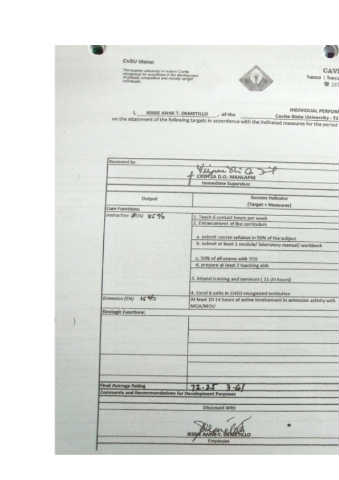 CvSU Vision
The premier university in historic Cavite
recognized for excellence in the development
of globally competitive and morally upright
individuals.
CAVI
INDIVIDUAL PERFOR
I, JESSIE ANNE T. DEMETILLO, of the Cavite State University - 
on the attainment of the following targets in accordance with the indicated measures for the period
Reviewed by
D.O. MANLAPIG
Immediate Supervisor
Output
Success Indicator
(Target + Measures)
Core Functions
Instruction 85%
1. Teach 6 contact hours per week
2. Enhancement of the curriculum
a. submit course syllabus in 50% of the subject
b. submit at least 1 module/ laboratory manual/ workbook
c. 50% of all exams with TOS
d. prepare at least 2 teaching aids
3. Attend training and seminars (
4. Enrol 6 units in CHED recognized institution
Extension (EN) 15%
At least 10-14 hours of active involvement in extension activity with
MOA/MOU
Strategic Functions:
Final Average Rating
72.25 3.61
Comments and Recommendations for Development Purposes
Discussed With
JESSIE ANNE T. DEMETILLO
Employee